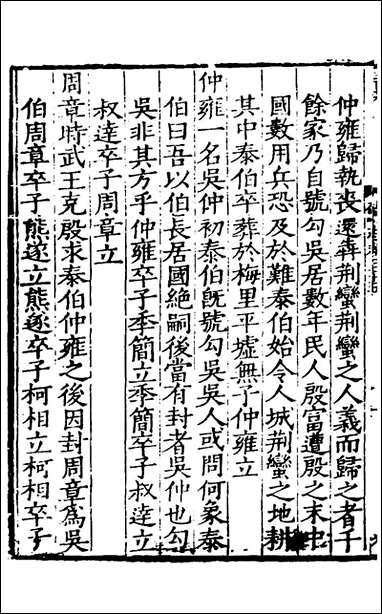 仲雍歸執喪還犇荆蠻荆蠻之人義而歸之者千
餘家乃自號勾吳居數年民人殷富遭殷之末中
國數用兵恐及於難泰伯始令人城荆蠻之地耕
其中泰伯卒葬於梅里平墟無子仲雍立
仲雍一名吳仲初泰伯旣號勾吳吳人或問何象泰
伯曰吾以伯長居國絶嗣後當有封者吳仲也勾
吳非其方乎仲雍卒子季簡立季簡卒子叔達立
叔達卒子周章立
周章時武王克殷求泰伯仲雍之後因封周章爲吳
伯周章卒子熊遂立熊遂卒子柯相立柯相卒子